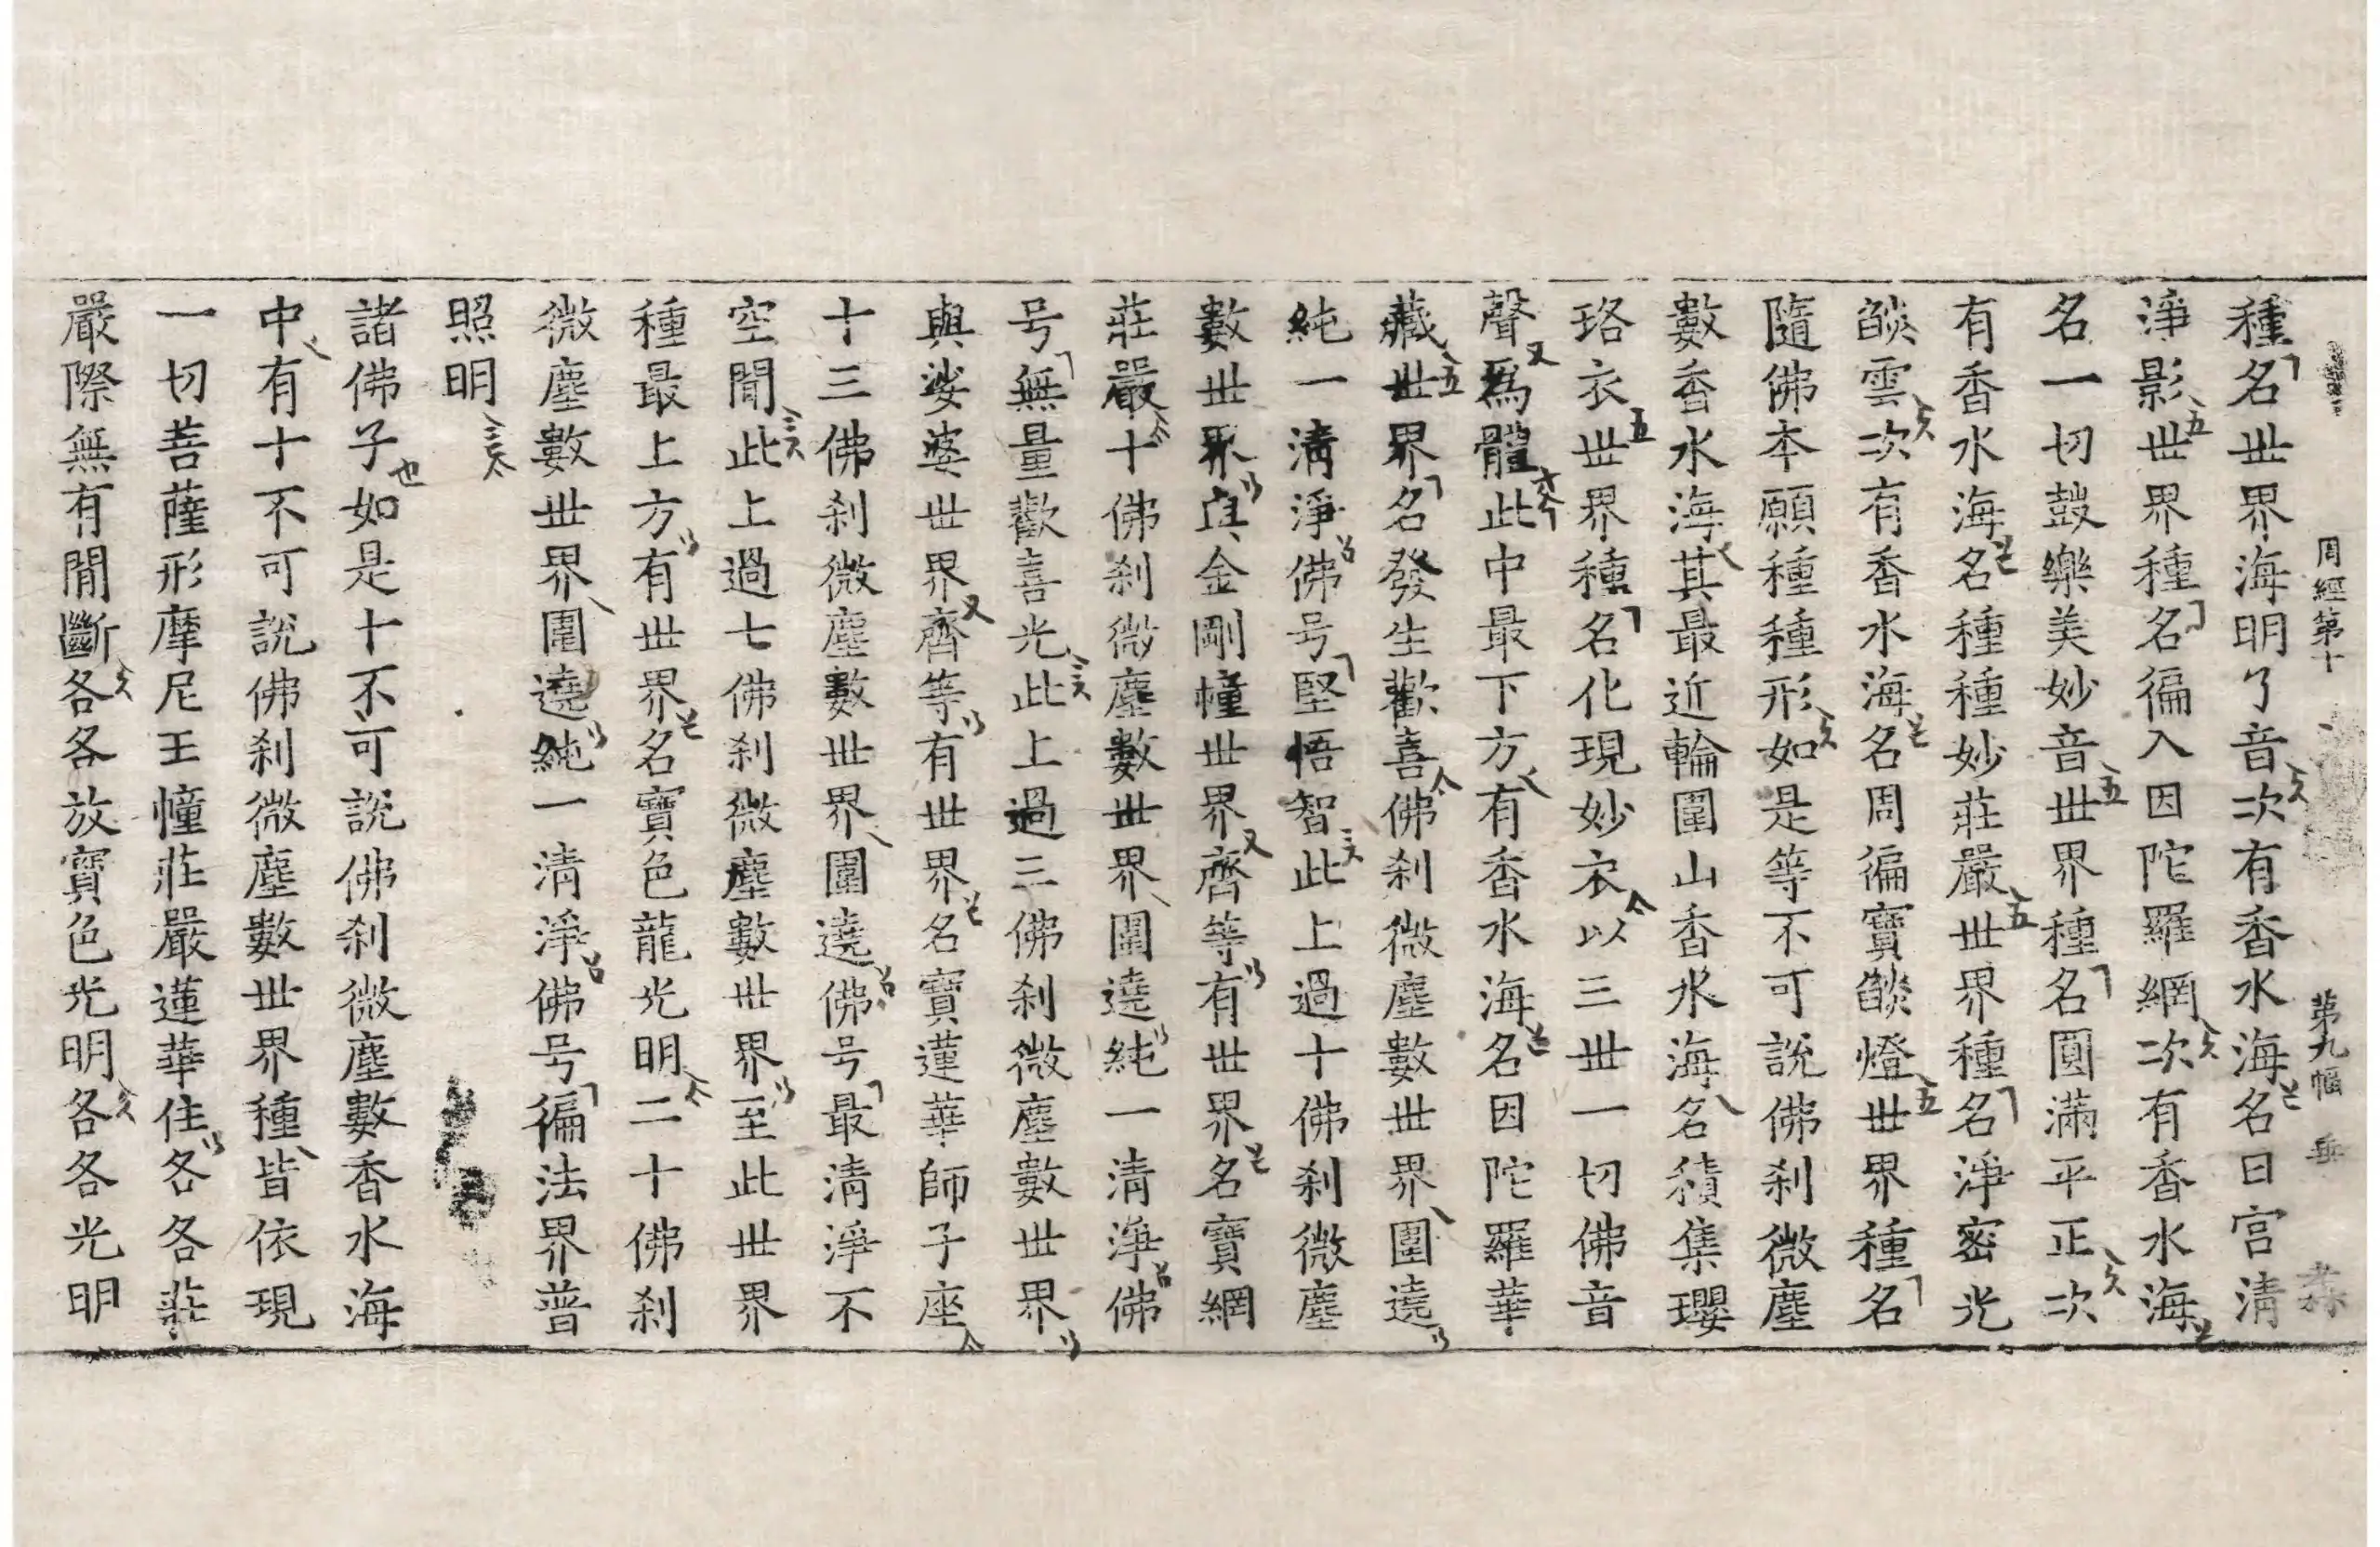 周經第十 第九幅 垂
種名世界海明了音次有香水海名日宮清
淨影世界種名徧入因陀羅網次有香水海
名一切鼓樂美妙音世界種名圓滿平正次
有香水海名種種妙莊嚴世界種名淨密光
燄雲次有香水海名周徧寶燄燈世界種名
隨佛本願種種形如是等不可說佛刹微塵
數香水海其最近輪圍山香水海名積集瓔
珞衣世界種名化現妙衣以三世一切佛音
聲爲體此中最下方有香水海名因陀羅華
藏世界名發生歡喜佛刹微塵數世界圍遶
純一清淨佛号堅悟智此上過十佛刹微塵
數世界與金剛幢世界齊等有世界名寶網
莊嚴十佛刹微塵數世界圍遶純一清淨佛
号無量歡喜光此上過三佛刹微塵數世界
與娑婆世界齊等有世界名寶蓮華師子座
十三佛刹微塵數世界圍遶佛号最清淨不
空聞此上過七佛刹微塵數世界至此世界
種最上方有世界名寶色龍光明二十佛刹
微塵數世界圍遶純一清淨佛号徧法界普
照明
諸佛子如是十不可說佛刹微塵數香水海
中有十不可說佛刹微塵數世界種皆依現
一切菩薩形摩尼王幢莊嚴蓮華住各各莊
嚴際無有間斷各各放寶色光明各各光明